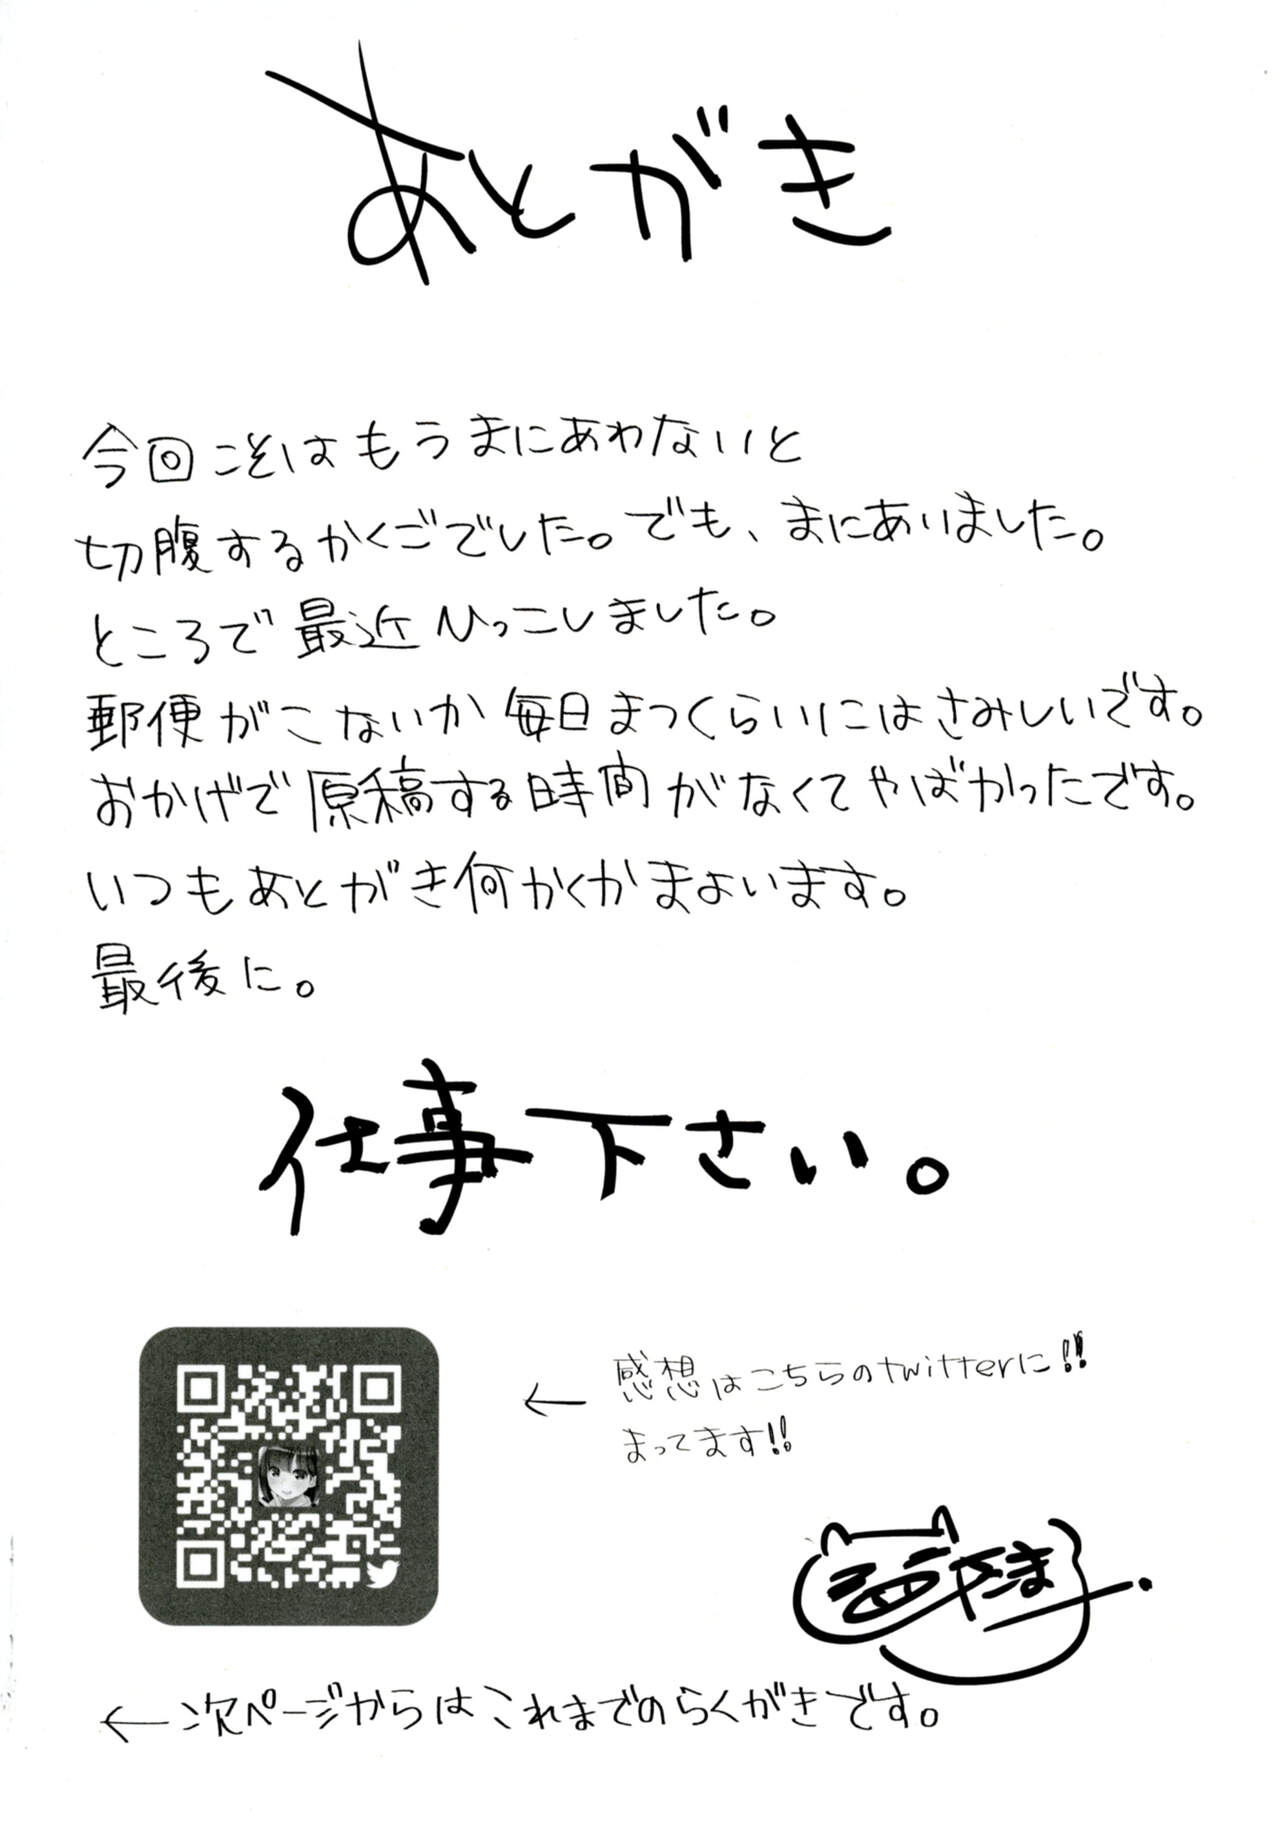 あとがき
今回こそはもうまにあわないと
切腹するかくごでした。でも、まにあいました。
ところで最近ひっこしました。
郵便がこないか毎日まつくらいにはさみしいです。
おかげで原稿する時間がなくてやばかったです。
いつもあとがき何かくかまよいます。
最後に。
仕事下さい。
← 感想はこちらのtwitterに!!
まってます!!
←次ページからはこれまでのらくがきです。